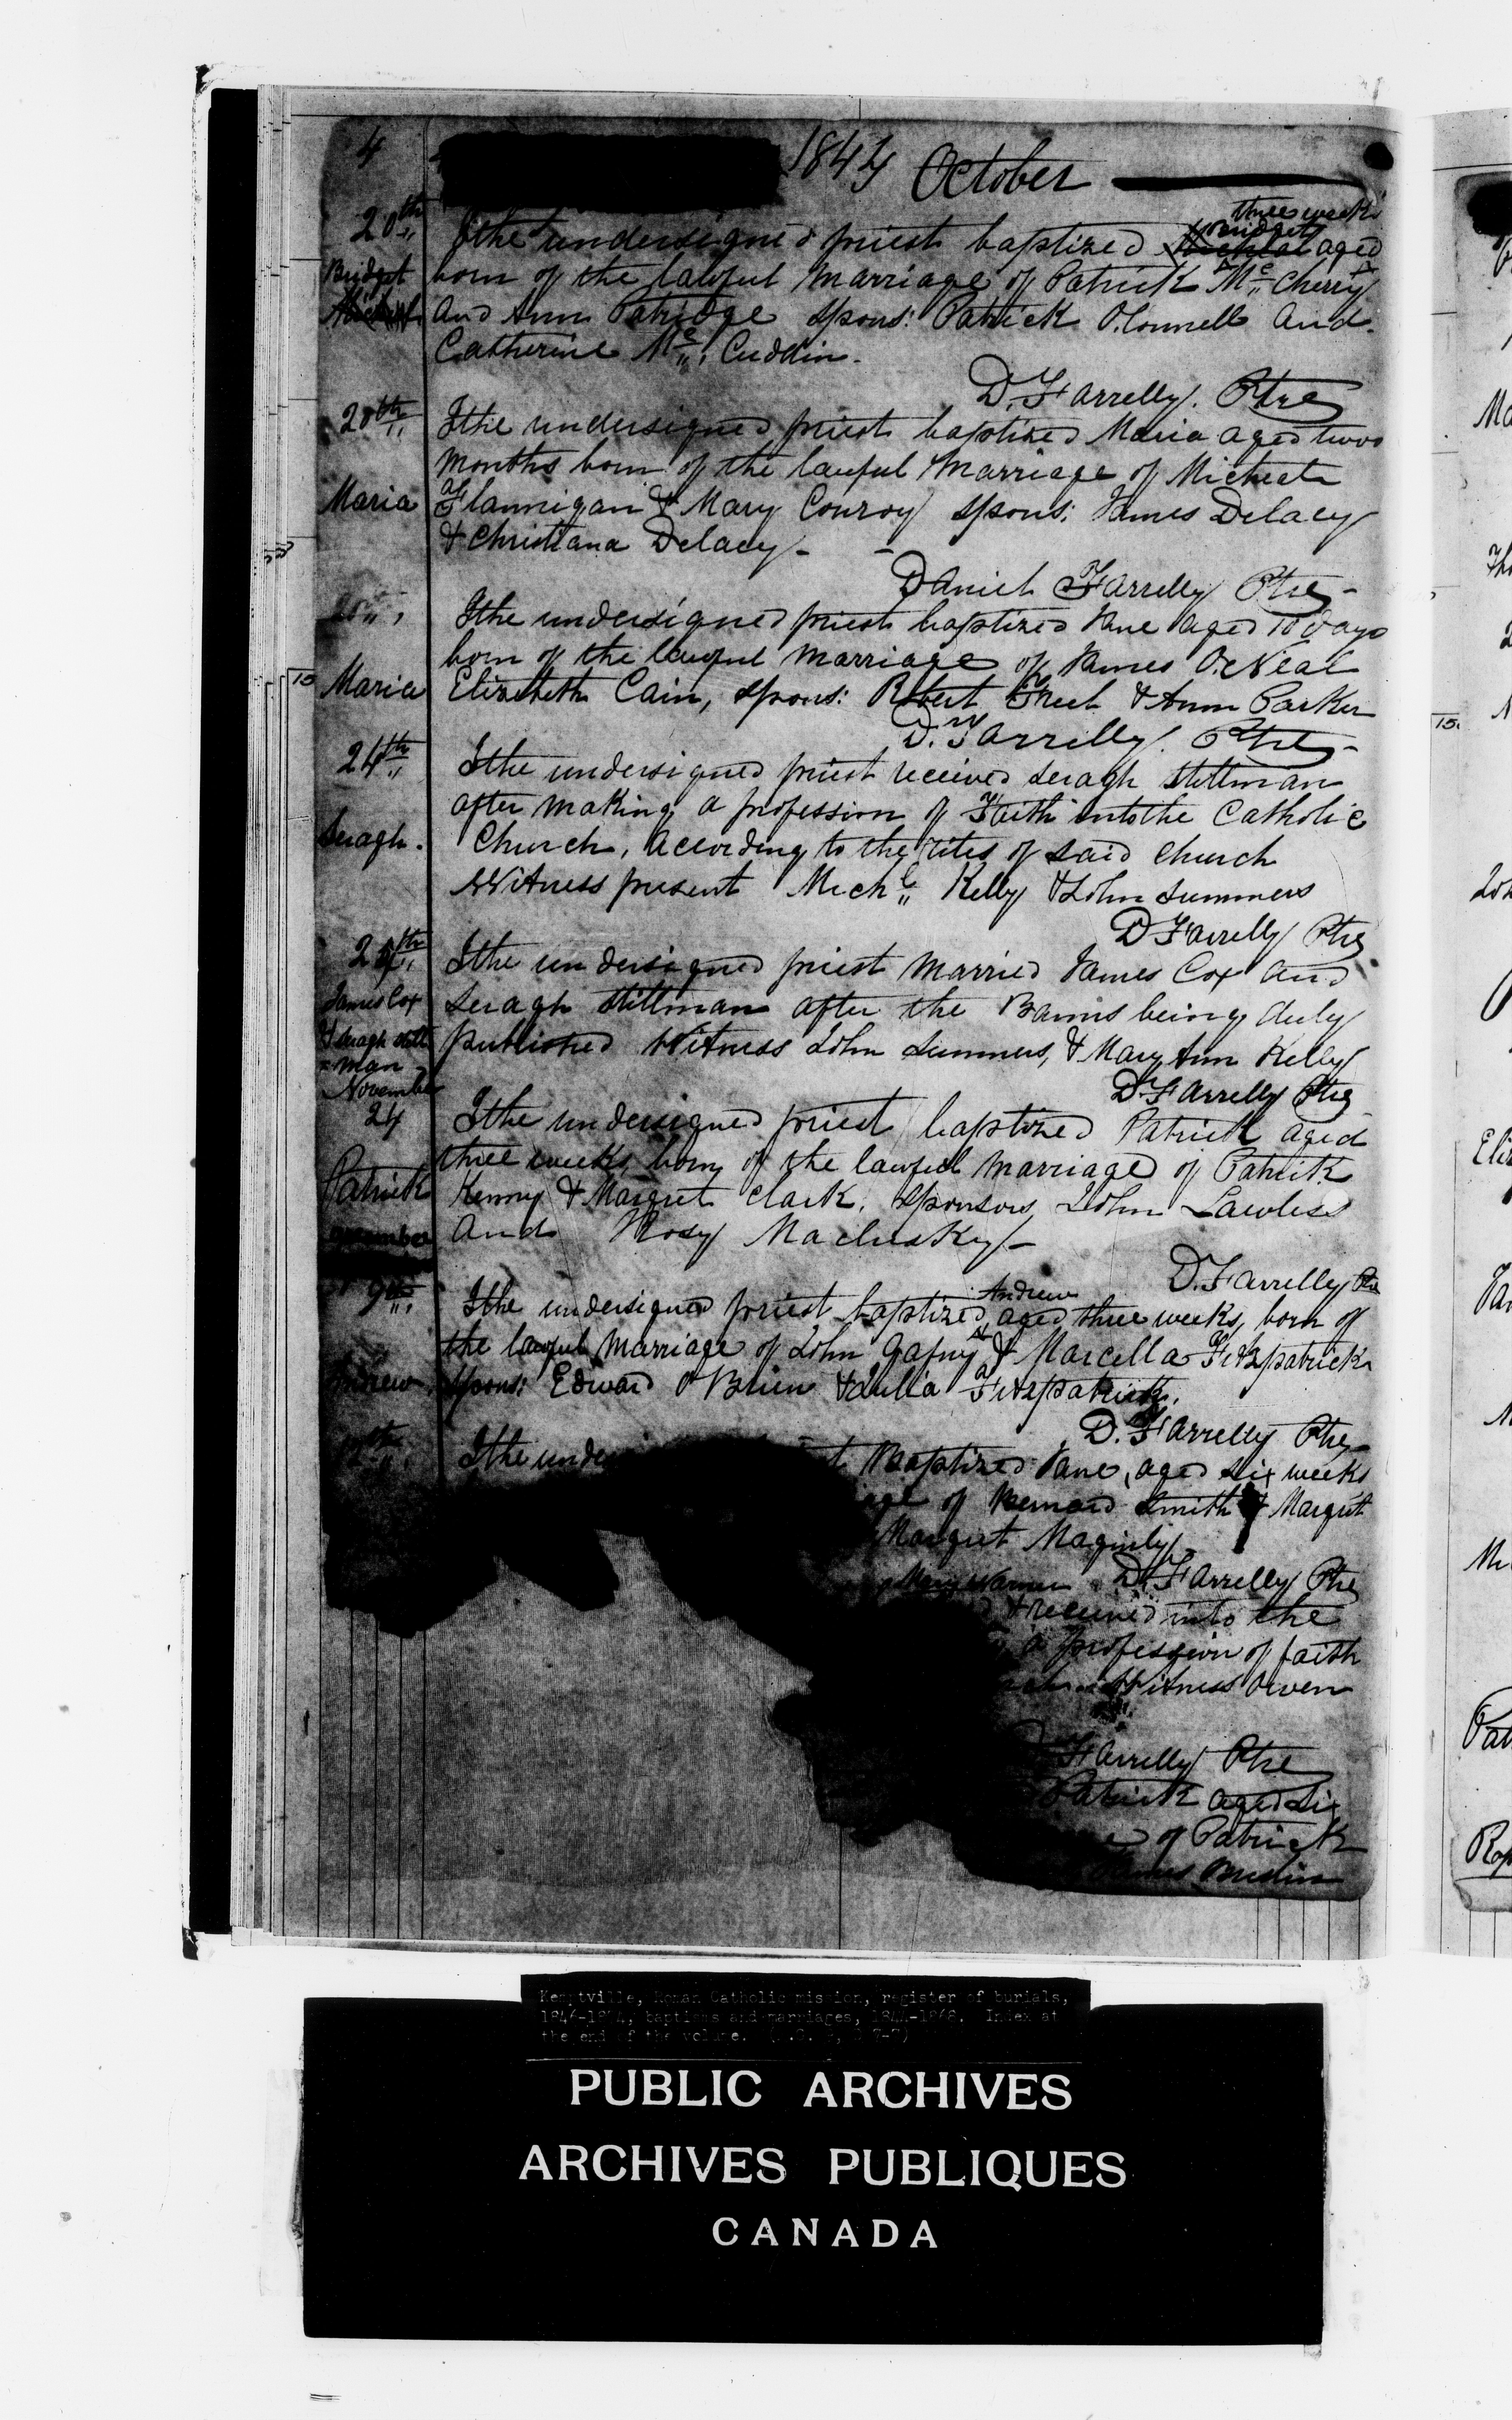 4 1844 October
20th I the undersigned priest baptized Bridget aged three weeks
Bridget born of the lawful marriage of Patrick Mc Cherry
and Ann Patridge Spons: Patrick O.Connell and
Catherine Mc Cuddin.
D. Farrelly. Ptre
20th I the undersigned priest baptized Maria aged two
months born of the lawful marriage of Micheal
Maria Flannigan & Mary Conroy Spons: James Delacy
& Christiana Delacy -
Daniel Farrelly Ptre -
I the undersigned priest baptized Jane aged 10 days
born of the lawful marriage of James O.Neal
Maria Elizabeth Cain, Spons: Robert & Ann Parker
D. Farrelly. Ptre -
24th I the undersigned priest received Seragh Stillman
after making a profession of Faith into the Catholic
Seragh. Church, according to the rites of said church
Witness present Michl Kelly & John Summers
D Farrelly Ptre
I the undersigned priest married James Cox and
James Cox Seragh Stillman after the Banns being duly
& Seragh Still published Witness John Summers, & Mary Ann Kelly
=man
D. Farrelly Ptre
November
24 I the undersigned priest baptized Patrick aged
three weeks born of the lawful marriage of Patrick
Patrick Kenny & Margret Clark. Sponsors John Lawless
and Rosy Macluskey -
December
D. Farrelly Ptre
9th I the undersigned priest baptized Andrew aged three weeks, born of
the lawful marriage of John Gafny & Marcella Fitzpatrick
Andrew Spons: Edward O'Brien & Julia Fitzpatrick.
D. Farrelly Ptre
12th I the Baptized Jane, aged six weeks
of Bernard Smith & Margret
Margret Maginly
Mary D. Farrelly Ptre
& received into the
a profession of faith
Witness Owen
Farrelly Ptre
Patrick aged six
of Patrick
15
15
Kemptville, Roman Catholic mission, register of burials,
baptisms and marriages, Index at
the end of the volume.
PUBLIC ARCHIVES
ARCHIVES PUBLIQUES
CANADA